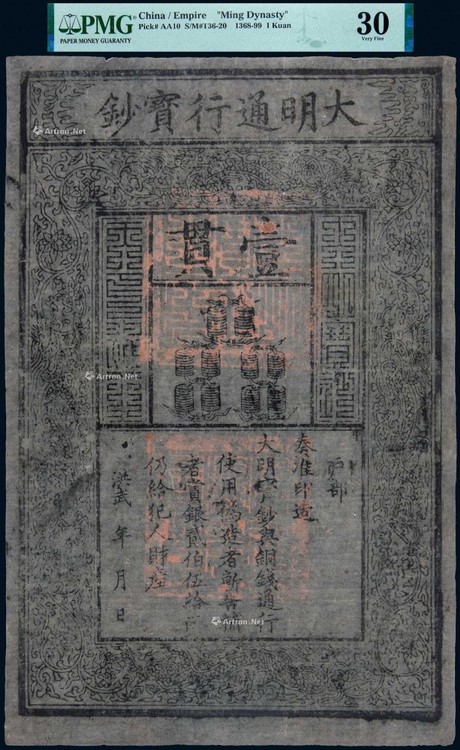 PMG
PAPER MONEY GUARANTY
China / Empire "Ming Dynasty"
Pick# AA10 S/M#136-20 1368-99 1 Kuan
30
Very Fine
大明通行寶鈔
壹貫
戶部
奏准印造
大明寶鈔與銅錢通行
使用偽造者斬告捕
者賞銀貳伯伍拾
仍給犯人財產
洪武 年 月 日
Artron.Net
Artron.Net
Artron.Net